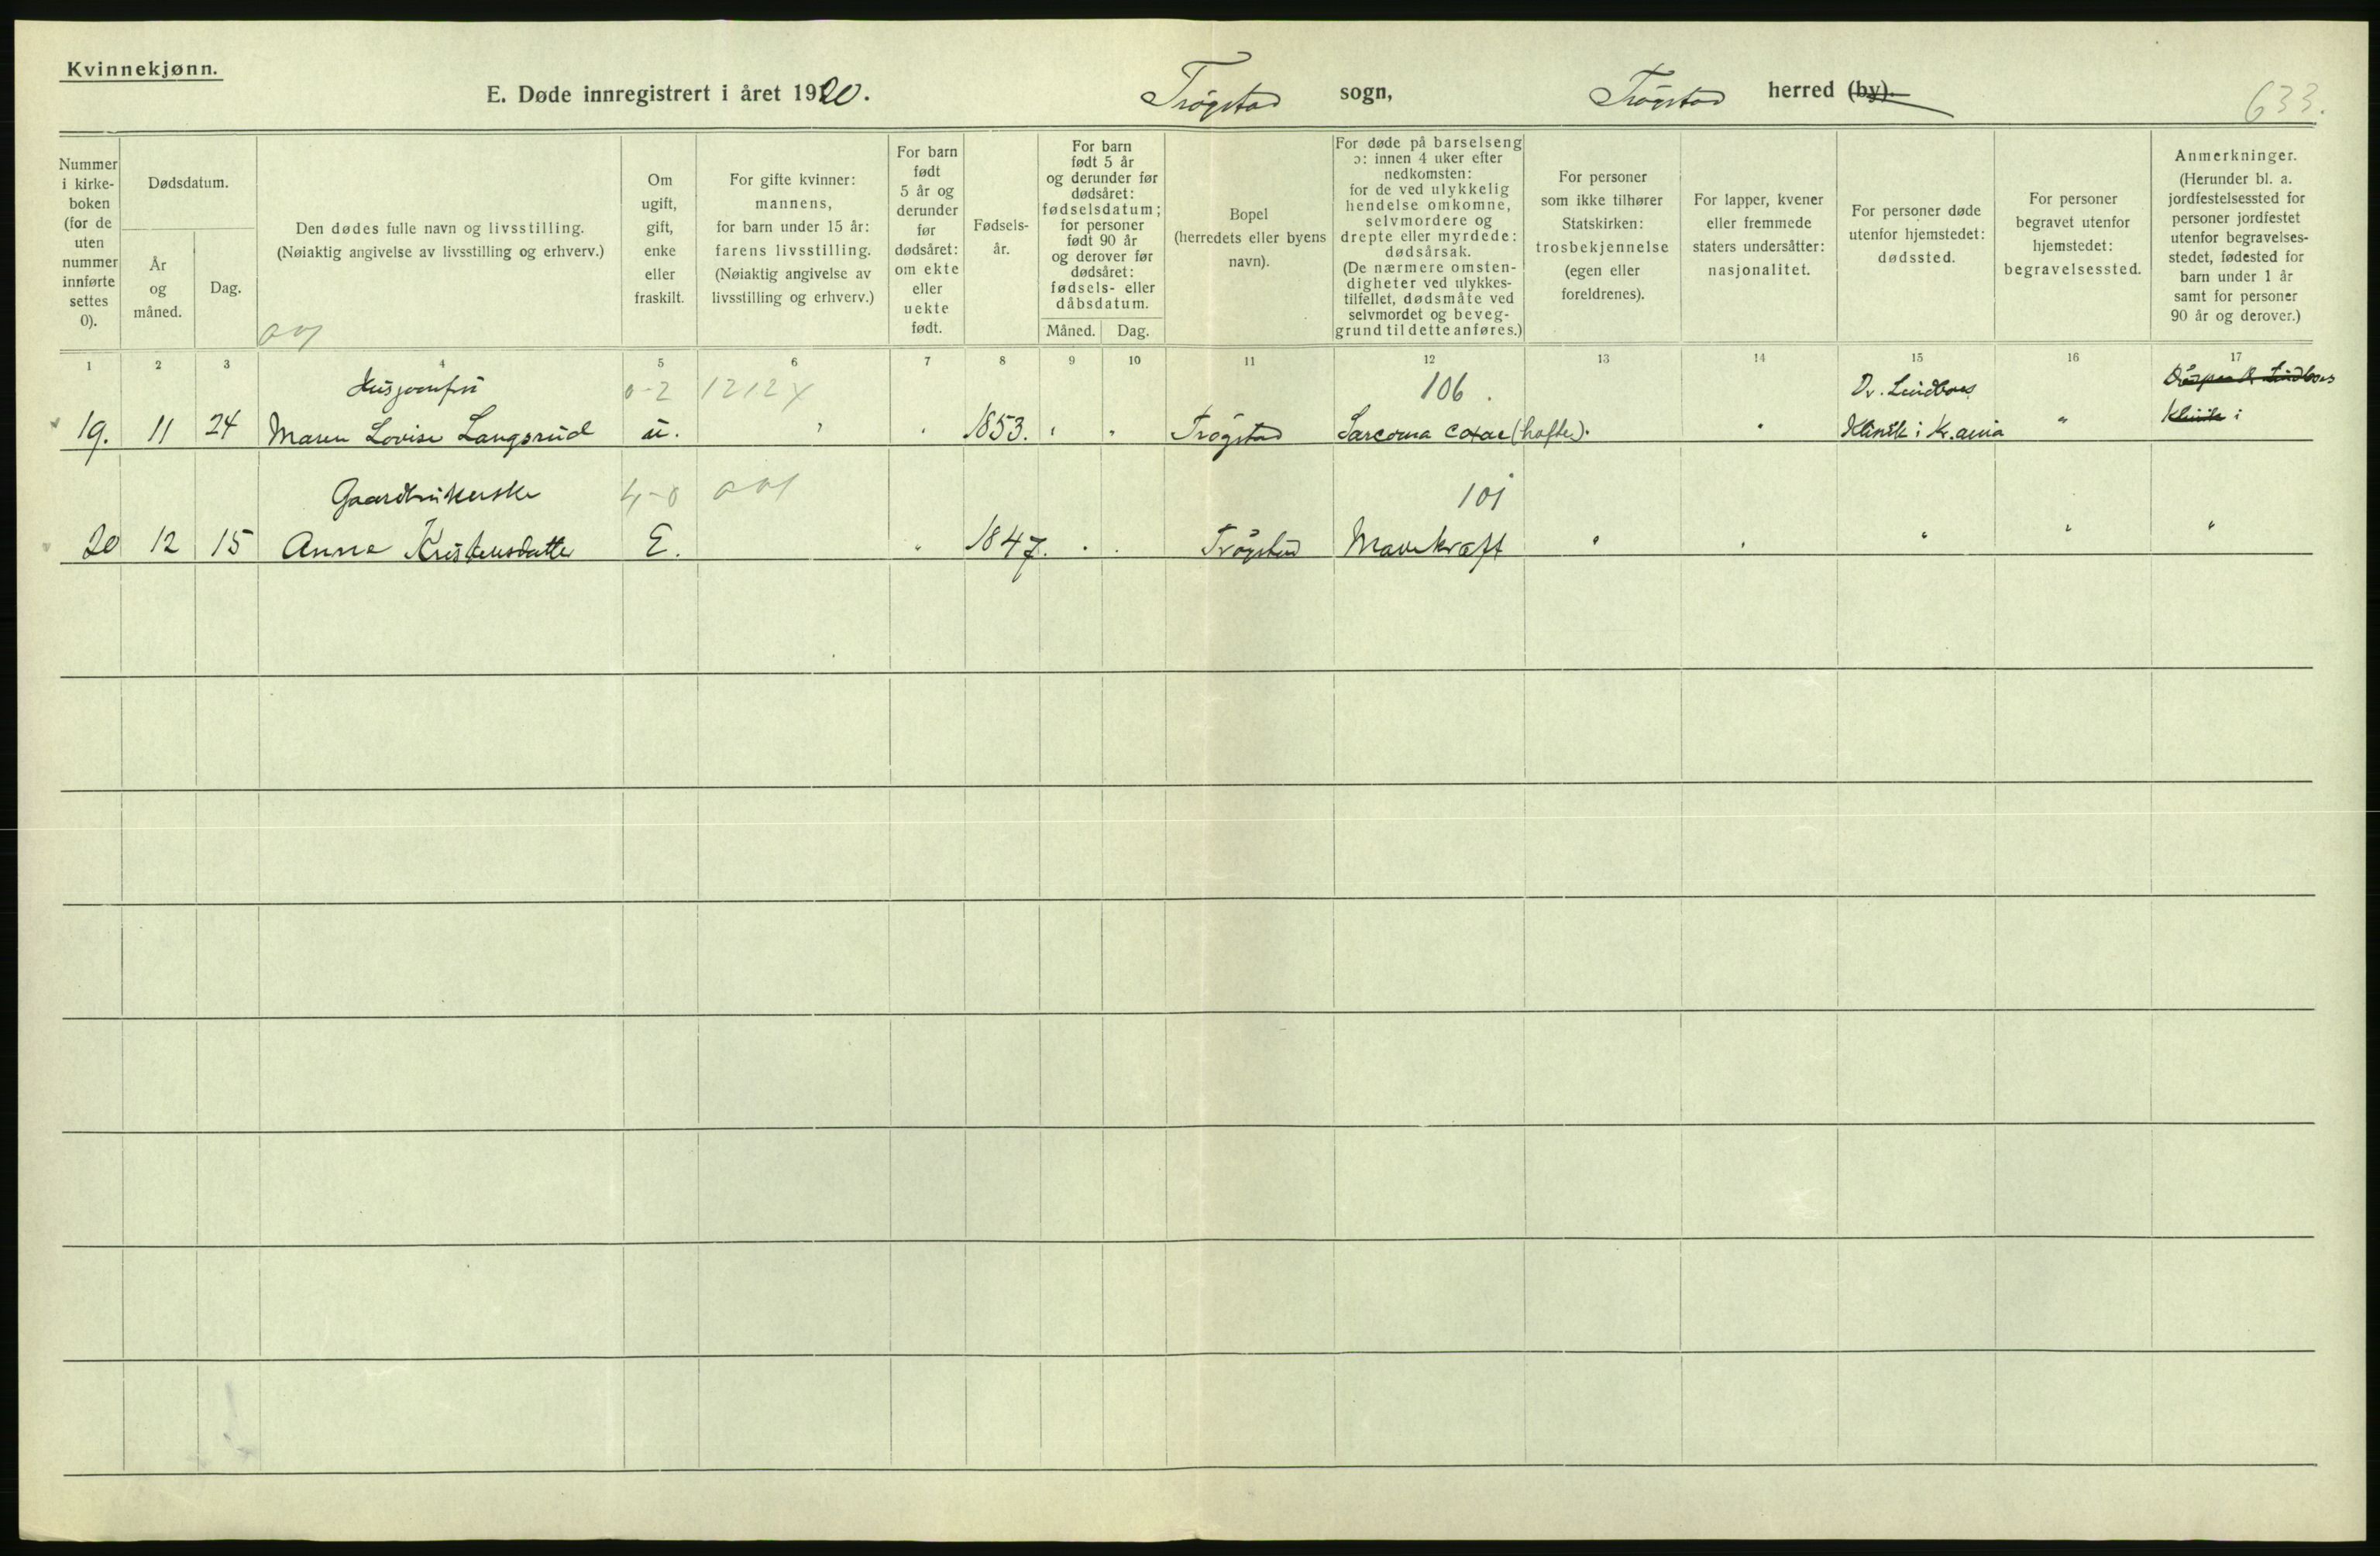 Kvinnekjønn.
E. Døde innregistrert i året 1920. Trøgstad sogn, Trøgstad herred (by). 633.
Nummer
i kirke-
boken
(for de
uten
nummer
innførte
settes
0).
Dødsdatum.
År
og
måned.
Dag.
Den dødes fulle navn og livsstilling.
(Nøiaktig angivelse av livsstilling og erhverv.)
Om
ugift,
gift,
enke
eller
fraskilt.
For gifte kvinner:
mannens,
for barn under 15 år:
farens livsstilling.
(Nøiaktig angivelse av
livsstilling og erhverv.)
For barn
født
5 år og
derunder
før
dødsåret:
om ekte
eller
uekte
født.
Fødsels-
år.
For barn
født 5 år
og derunder før
dødsåret:
fødselsdatum;
for personer
født 90 år
og derover før
dødsåret:
fødsels- eller
dåbsdatum.
Måned. Dag.
Bopel
(herredets eller byens
navn).
For døde på barselseng
ɔ: innen 4 uker efter
nedkomsten:
for de ved ulykkelig
hendelse omkomne,
selvmordere og
drepte eller myrdede:
dødsårsak.
(De nærmere omsten-
digheter ved ulykkes-
tilfellet, dødsmåte ved
selvmordet og beveg-
grund til dette anføres.)
For personer
som ikke tilhører
Statskirken:
trosbekjennelse
(egen eller
foreldrenes).
For lapper, kvener
eller fremmede
staters undersåtter:
nasjonalitet.
For personer døde
utenfor hjemstedet:
dødssted.
For personer
begravet utenfor
hjemstedet:
begravelsessted.
Anmerkninger.
(Herunder bl. a.
jordfestelsessted for
personer jordfestet
utenfor begravelses-
stedet, fødested for
barn under 1 år
samt for personer
90 år og derover.)
1 2 3 4 5 6 7 8 9 10 11 12 13 14 15 16 17
Husjomfru 0-2 1212X 106. Dr. Lindboes
19. 11 24 Maren Lovise Langsrud u. " " 1853. " " Trøgstad Sarcoma coxae (hofte). " Klinik i Kr.ania " Klinik i
Gaardbrukerske 4-0 101
20 12 15 Anna Kristensdatter E. " 1847. " " Trøgstad Mavekræft " " " " "